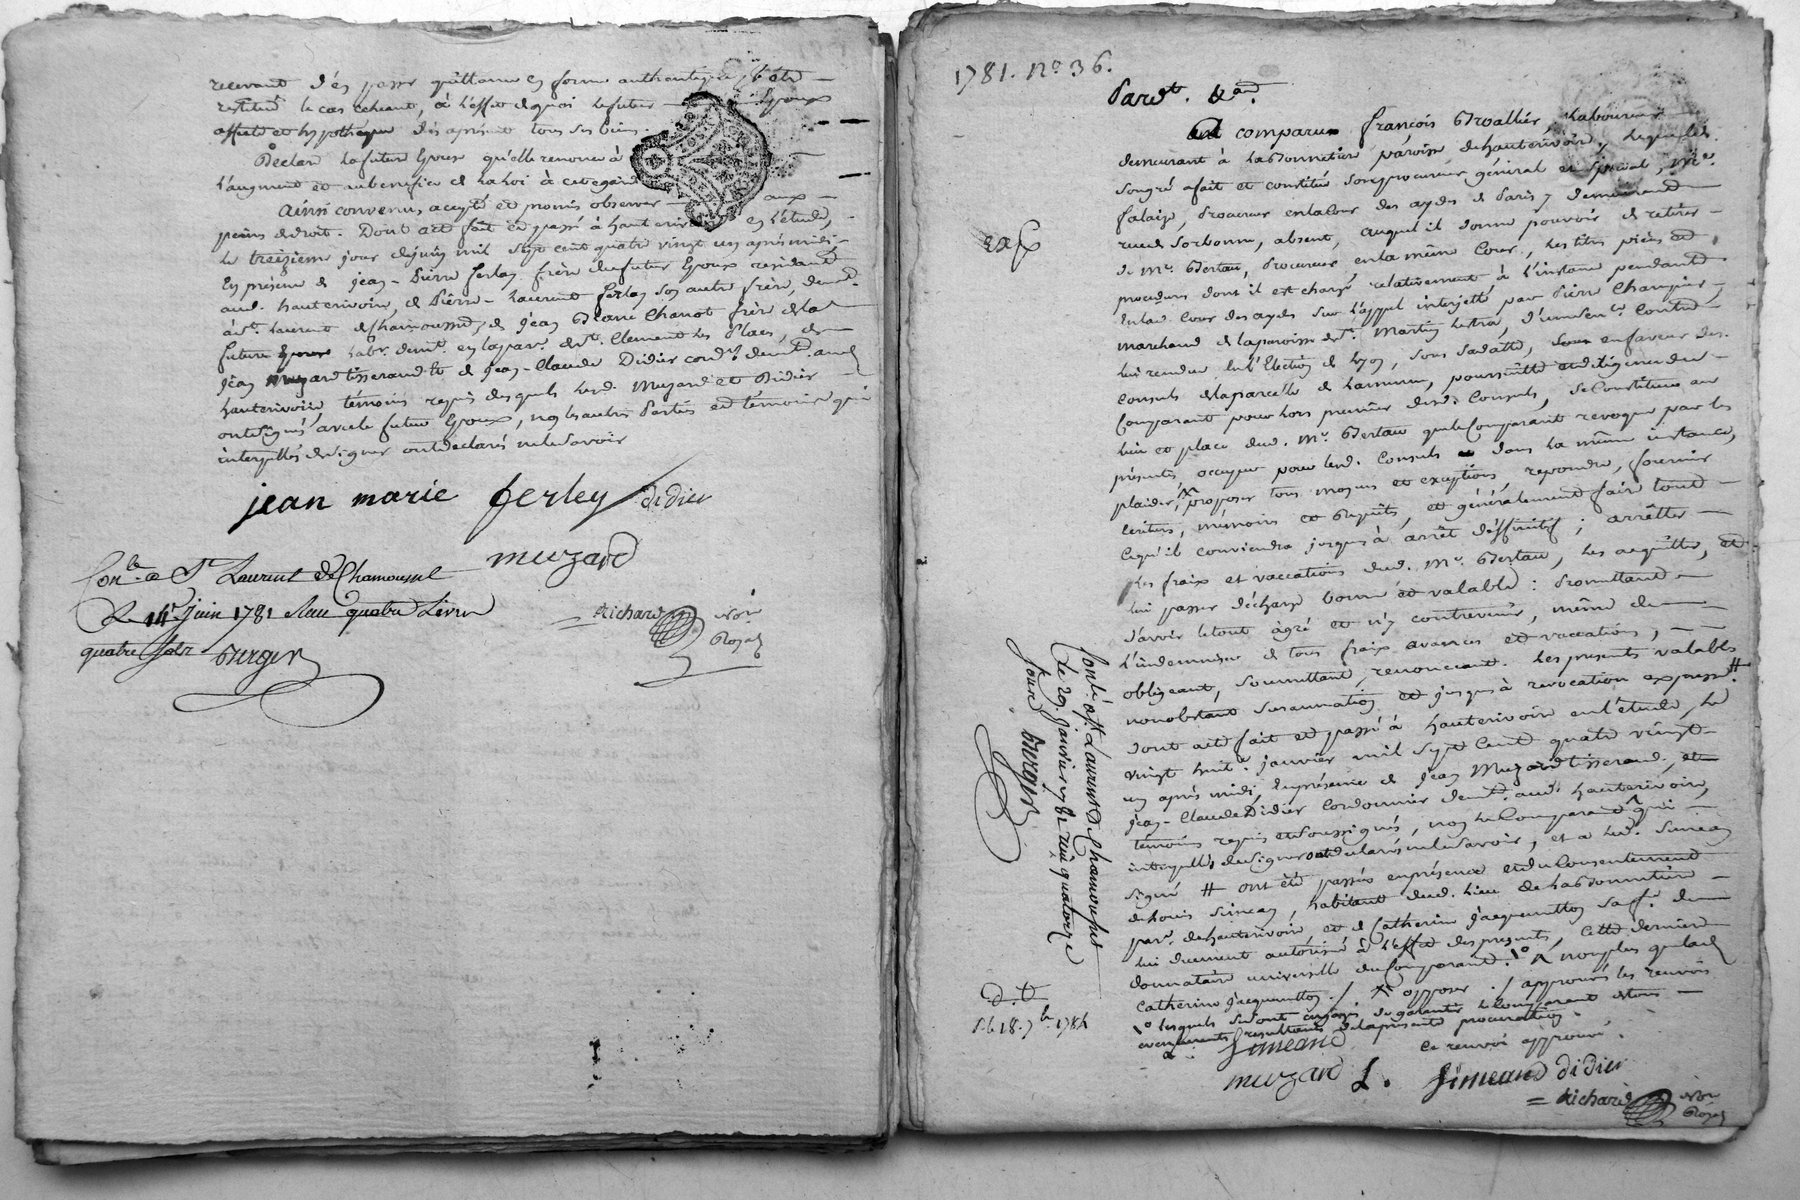 recevant d'en passer quittance en forme authentique, & être
restitué le cas échéant, à l'effet de quoi le futur Epoux
affecte et hypotheque dès aprésent tous ses biens
Declare la future Epouse qu'elle renonce à
l'augment et au benefice de la loi à cet egard
Ainsi convenu, accepté et promis observer aux
peines de droit. Dont acte fait et passé à hauterivoire en l'étude,
le treizieme jour de juin mil sept cent quatre vingt un après midi
En présence de jean-Pierre ferley frère du futur Epoux residant
aud. hauterivoire, de Pierre-Laurent ferley son autre frère, demt.
à st. laurent de chamousset, de jean Chanot frère de la
future Epouse labr. demt. en la par. de st. Clement les Places, et
jean muzard tisserand & de jean-Claude Didier cordr. demt. aud.
hauterivoire, témoins requis desquels lesd. Muzard et Didier
ont signés avec le futur Epoux, non les autres Parties et témoins qui
interpellés de signer ont déclarés ne le savoir
jean marie ferley didier
muzard
Conlé. a St Laurent de Chamousset
Le 14e. juin 1781 Reçu quatre Livres
quatre sols Berger
= Richard Nore
Royal
1781. No. 36.
Pardt. &a.
Est comparu françois Broallier, Laboureur
demeurant à la Bonnetiere, paroisse de hauterivoire, lequel de
son gré a fait et constitué son procureur général et spécial, Me.
falaize, Procureur en la Cour des aydes de Paris, y demeurant
rue de Sorbonne, absent, auquel il donne pouvoir de retirer
de Me. Bertau, Procureur en la même Cour, les titres pièces et
procedures dont il est chargé relativement à l'instance pendante
en lad. Cour des aydes sur l'appel interjetté par Pierre Champier,
marchand de la paroisse de st. Martin Lestra, d'une sentce. Contre
lui rendue en l'Election de lyon, sous sa datte, en faveur des
Consuls de la parcelle de hamure, poursuitte et diligence du
Comparant pour lors premier desd. Consuls, se Constituer au
lieu et place dud. Me. Bertau que le Comparant revoque par les
présentes, occuper pour lesd. Consuls dans la même instance,
plaider, proposer tous moyens et exceptions, repondre, fournir
Ecritures, mémoires et Requêtes, et généralement faire tout
Ce qu'il conviendra jusques à arrêt déffinitif; arrêtter
les fraix et vaccations dud. Me. Bertau, les acquitter, et
lui passer décharge bonne et valable: Promettant
d'avoir le tout agréé et n'y contrevenir, même de
l'indemniser de tous fraix avances et vaccations,
obligeant, soumettant, renonceant. Les presentes valables
nonobstant surannation et jusques à revocation expresse. #
Dont acte fait et passé à hauterivoire en l'étude, le
vingt huite. janvier mil sept Cent quatre vingt
un après midi, En présence de jean Muzard tisserand, et
jean-Claude Didier Cordonnier demt. aud. hauterivoire,
témoins requis et soussignés, non le Comparant qui
interpellés de signer ont déclarés ne le savoir, et a led. Simean
signé # ont été passées en présence et du Consentement
de Louis Simean, habitant dud. lieu de la Bonnetière
par. de hauterivoire, et de Catherine jacquemetton sa f. de
lui dument autorisée à l'effet des presentes, Cette derniere
donnataire universelle du Comparant. 1° non plus que lad.
Catherine jacquemetton. / opposer ./ approuvés les renvois
1° lesquels se sont engagés de garantir le Comparant de tous
evenements resultants de la presente procuration.
Ce renvoi approuvé.
Simeand
muzard L. Simeand didier
= Richard Nore
Royal
exp
Conlé. a St. Laurent De Chamousset
Le 29. janvier 1781 Reçu quatorze
sous Berger
d. t.
d. le 18. 7bre. 1784